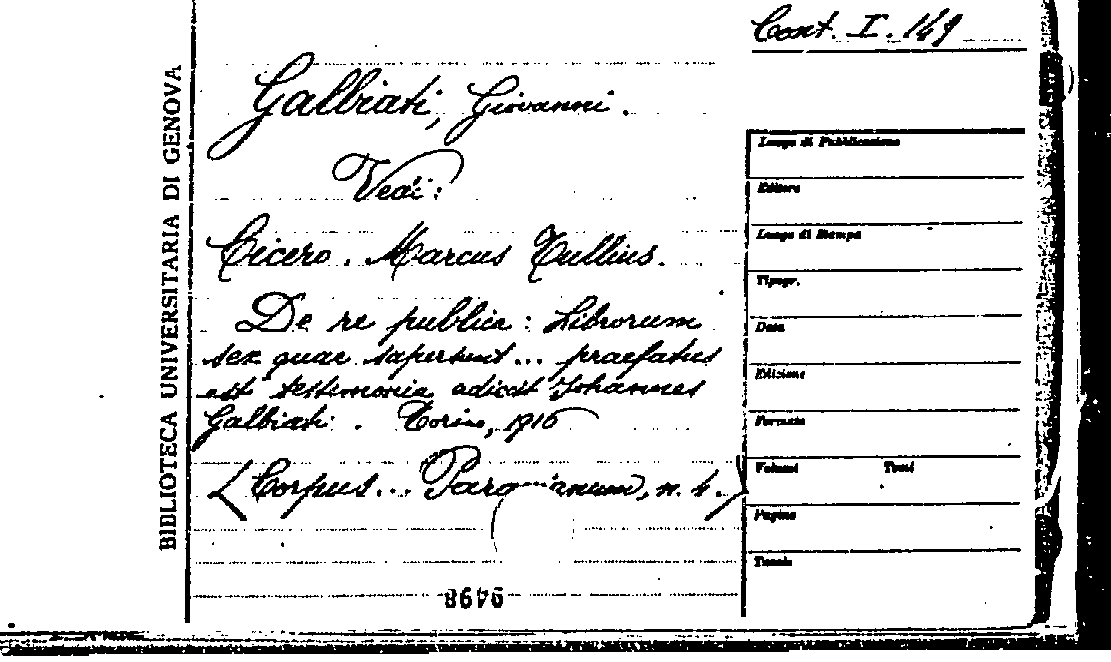 Cont. I. 149
BIBLIOTECA UNIVERSITARIA DI GENOVA
Galbiati, Giovanni.
Vedi:
Cicero. Marcus Tullius.
De re publica: Librorum
sex quae supersunt... praefatus
est testimonia adiecit Johannes
Galbiati. Torino, 1916
(Corpus... Paravianum, n. 4.)
Luogo di Pubblicazione
Editore
Luogo di Stampa
Tipogr.
Data
Edizione
Formato
Volumi Tomi
Pagine
Tavole